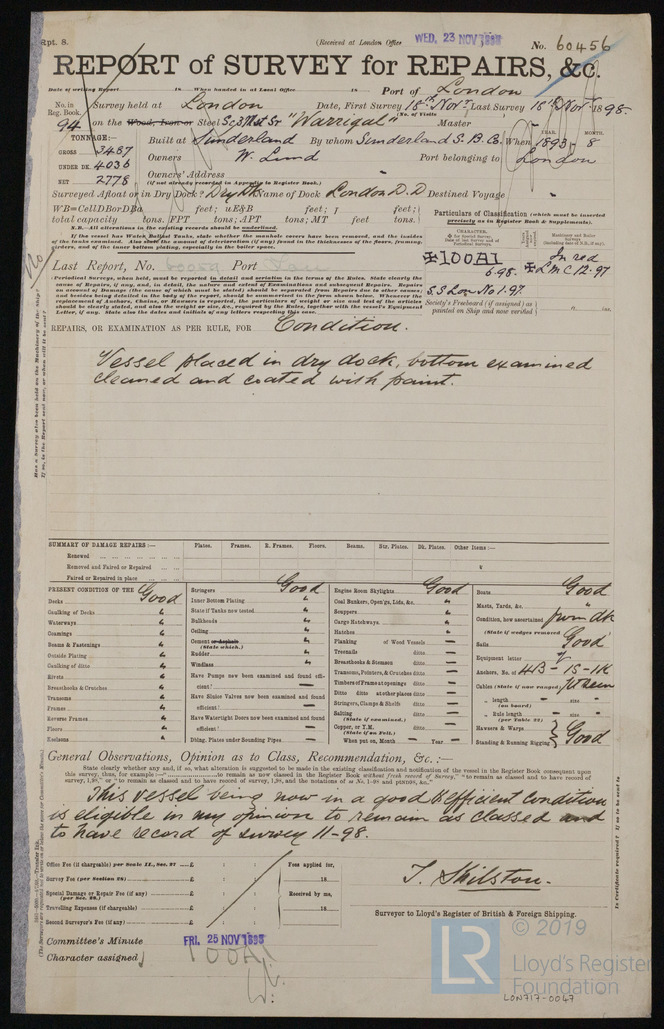 Rpt. 8.
(Received at London Office
WED. 23 NOV 1898
No. 60456
REPORT of SURVEY for REPAIRS, &c.
Date of writing Report 18 When handed in at Local Office 18 Port of London
No. in Reg. Book. Survey held at London Date, First Survey 18th Nov. Last Survey 18th Nov. 1898.
(No. of Visits
94 on the Wood, Iron or Steel Sc 3 Mst Sr "Warrigal" Master
TONNAGE:—
GROSS 3487
UNDER DK. 4036
NET 2778
Built at Sunderland By whom Sunderland S. B. Co. When 1893 - 8
YEAR. MONTH.
Owners W. Lund Port belonging to London
Owners' Address
(if not already recorded in Appendix to Register Book.)
Surveyed Afloat or in Dry Dock? Dry Dk Name of Dock London D. D Destined Voyage
WB=CellDBorDBa feet; uE&B feet; f feet;
total capacity tons. FPT tons; APT tons; MT feet tons.
N.B.—All alterations in the existing records should be underlined.
If the vessel has Water Ballast Tanks, state whether the manhole covers have been removed, and the insides
of the tanks examined. Also state the amount of deterioration (if any) found in the thicknesses of the floors, framing,
girders, and of the inner bottom plating, especially in the boiler space.
Particulars of Classification (which must be inserted
precisely as in Register Book & Supplements).
CHARACTER.
✠100A1
6.98.
S.S Lon No 1-97.
In red
✠LMC 12.97
Society's Freeboard (if assigned) as
painted on Ship and now verified
Last Report, No. Port
Periodical Surveys, when held, must be reported in detail and seriatim in the terms of the Rules. State clearly the
cause of Repairs, if any, and, in detail, the nature and extent of Examinations and subsequent Repairs. Repairs
on account of Damage (the cause of which must be stated) should be separated from Repairs due to other causes;
and besides being detailed in the body of the report, should be summarized in the form shown below. Whenever the
replacement of Anchors, Chains, or Hawsers is reported, the particulars of weight or size and test of the articles
should be clearly stated, and also the weight or size, &c., required by the Rules, together with the vessel's Equipment
Letter, if any. State also the dates and initials of any letters respecting this case.
REPAIRS, OR EXAMINATION AS PER RULE, FOR Condition.
Vessel placed in dry dock, bottom examined
cleaned and coated with paint.
Has a Survey also been held on the Machinery of the Ship?
If so, is the Report sent now, or when will it be sent?
No
SUMMARY OF DAMAGE REPAIRS:— Plates. Frames. R. Frames. Floors. Beams. Str. Plates. Dk. Plates. Other Items:—
Renewed
Removed and Faired or Repaired
Faired or Repaired in place
PRESENT CONDITION OF THE Good
Decks
Caulking of Decks "
Waterways "
Coamings "
Beams & Fastenings "
Outside Plating "
Caulking of ditto "
Rivets "
Breasthooks & Crutches "
Transoms "
Frames "
Reverse Frames "
Floors "
Keelsons "
Stringers Good
Inner Bottom Plating "
State if Tanks now tested "
Bulkheads "
Ceiling "
Cement or Asphalt "
(State which.)
Rudder "
Windlass "
Have Pumps now been examined and found efficient? —
Have Sluice Valves now been examined and found efficient? —
Have Watertight Doors now been examined and found efficient? —
Dblng. Plates under Sounding Pipes —
Engine Room Skylights Good
Coal Bunkers, Open'gs, Lids, &c. "
Scuppers "
Cargo Hatchways "
Hatches "
Planking of Wood Vessels —
Treenails ditto —
Breasthooks & Stemson ditto —
Transoms, Pointers, & Crutches ditto —
Timbers of Frame at openings ditto —
Ditto ditto at other places ditto —
Stringers, Clamps & Shelfs ditto —
Salting ditto —
(State if examined.)
Copper, or Y.M. ditto —
(State if on Felt.)
When put on, Month — Year —
Boats Good
Masts, Yards, &c. "
Condition, how ascertained from dk
(State if wedges removed
Sails Good
Equipment letter
Anchors, No. of 4B - 1S - 1K
Cables (State if now ranged)
" length — size —
(on board)
" Rule length — size —
(per Table 22)
Hawsers & Warps
Standing & Running Rigging } Good
General Observations, Opinion as to Class, Recommendation, &c.:—
State clearly whether any and, if so, what alteration is suggested to be made in the existing classification and notification of the vessel in the Register Book consequent upon
this survey, thus, for example:—" to remain as now classed in the Register Book without fresh record of Survey," "to remain as classed and to have record of
This vessel being now in a good & efficient condition
is eligible in my opinion to remain as classed and
to have record of survey 11-98.
Office Fee (if chargeable) per Scale II., Sec. 27 £ : :
Survey Fee (per Section 28) £ : :
Special Damage or Repair Fee (if any) £ : :
(per Sec. 28.)
Travelling Expenses (if chargeable) £ : :
Second Surveyor's Fee (if any) £ : :
Fees applied for,
18
Received by me,
18
T. Shilston.
Surveyor to Lloyd's Register of British & Foreign Shipping.
Is Certificate required? If so, to be sent to
Committee's Minute FRI. 25 NOV 1898
Character assigned 100A1
© 2019
LR
Lloyd's Register
Foundation
LON717-0047